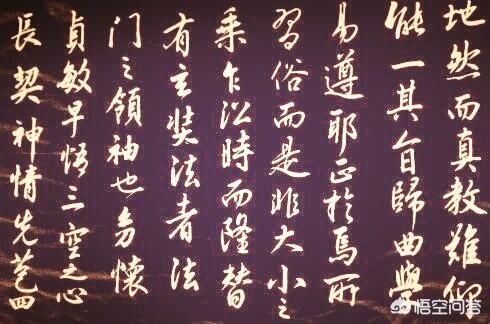 地然而真教難仰
能一其旨歸曲學
易遵耶正於焉所
習俗而是非大小之
乘乍沿時而隆替
有玄奘法者法
門之領袖也幼懷
貞敏早悟三空之心
長契神情先苞四
悟空问答